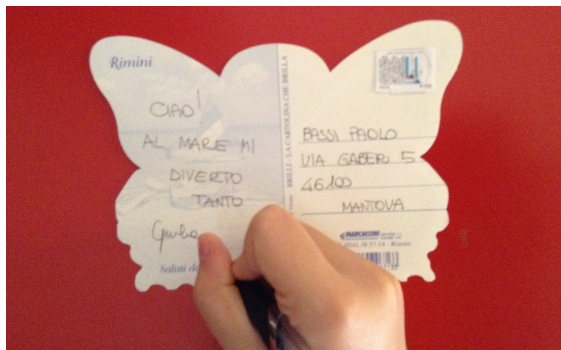 Rimini
CIAO!
AL MARE MI
DIVERTO
TANTO
Giulia
Saluti da
BRILLI - LA CARTOLINA CHE BRILLA
BASSI PAOLO
VIA GABERI 5
46100
MANTOVA
MARCACCINI